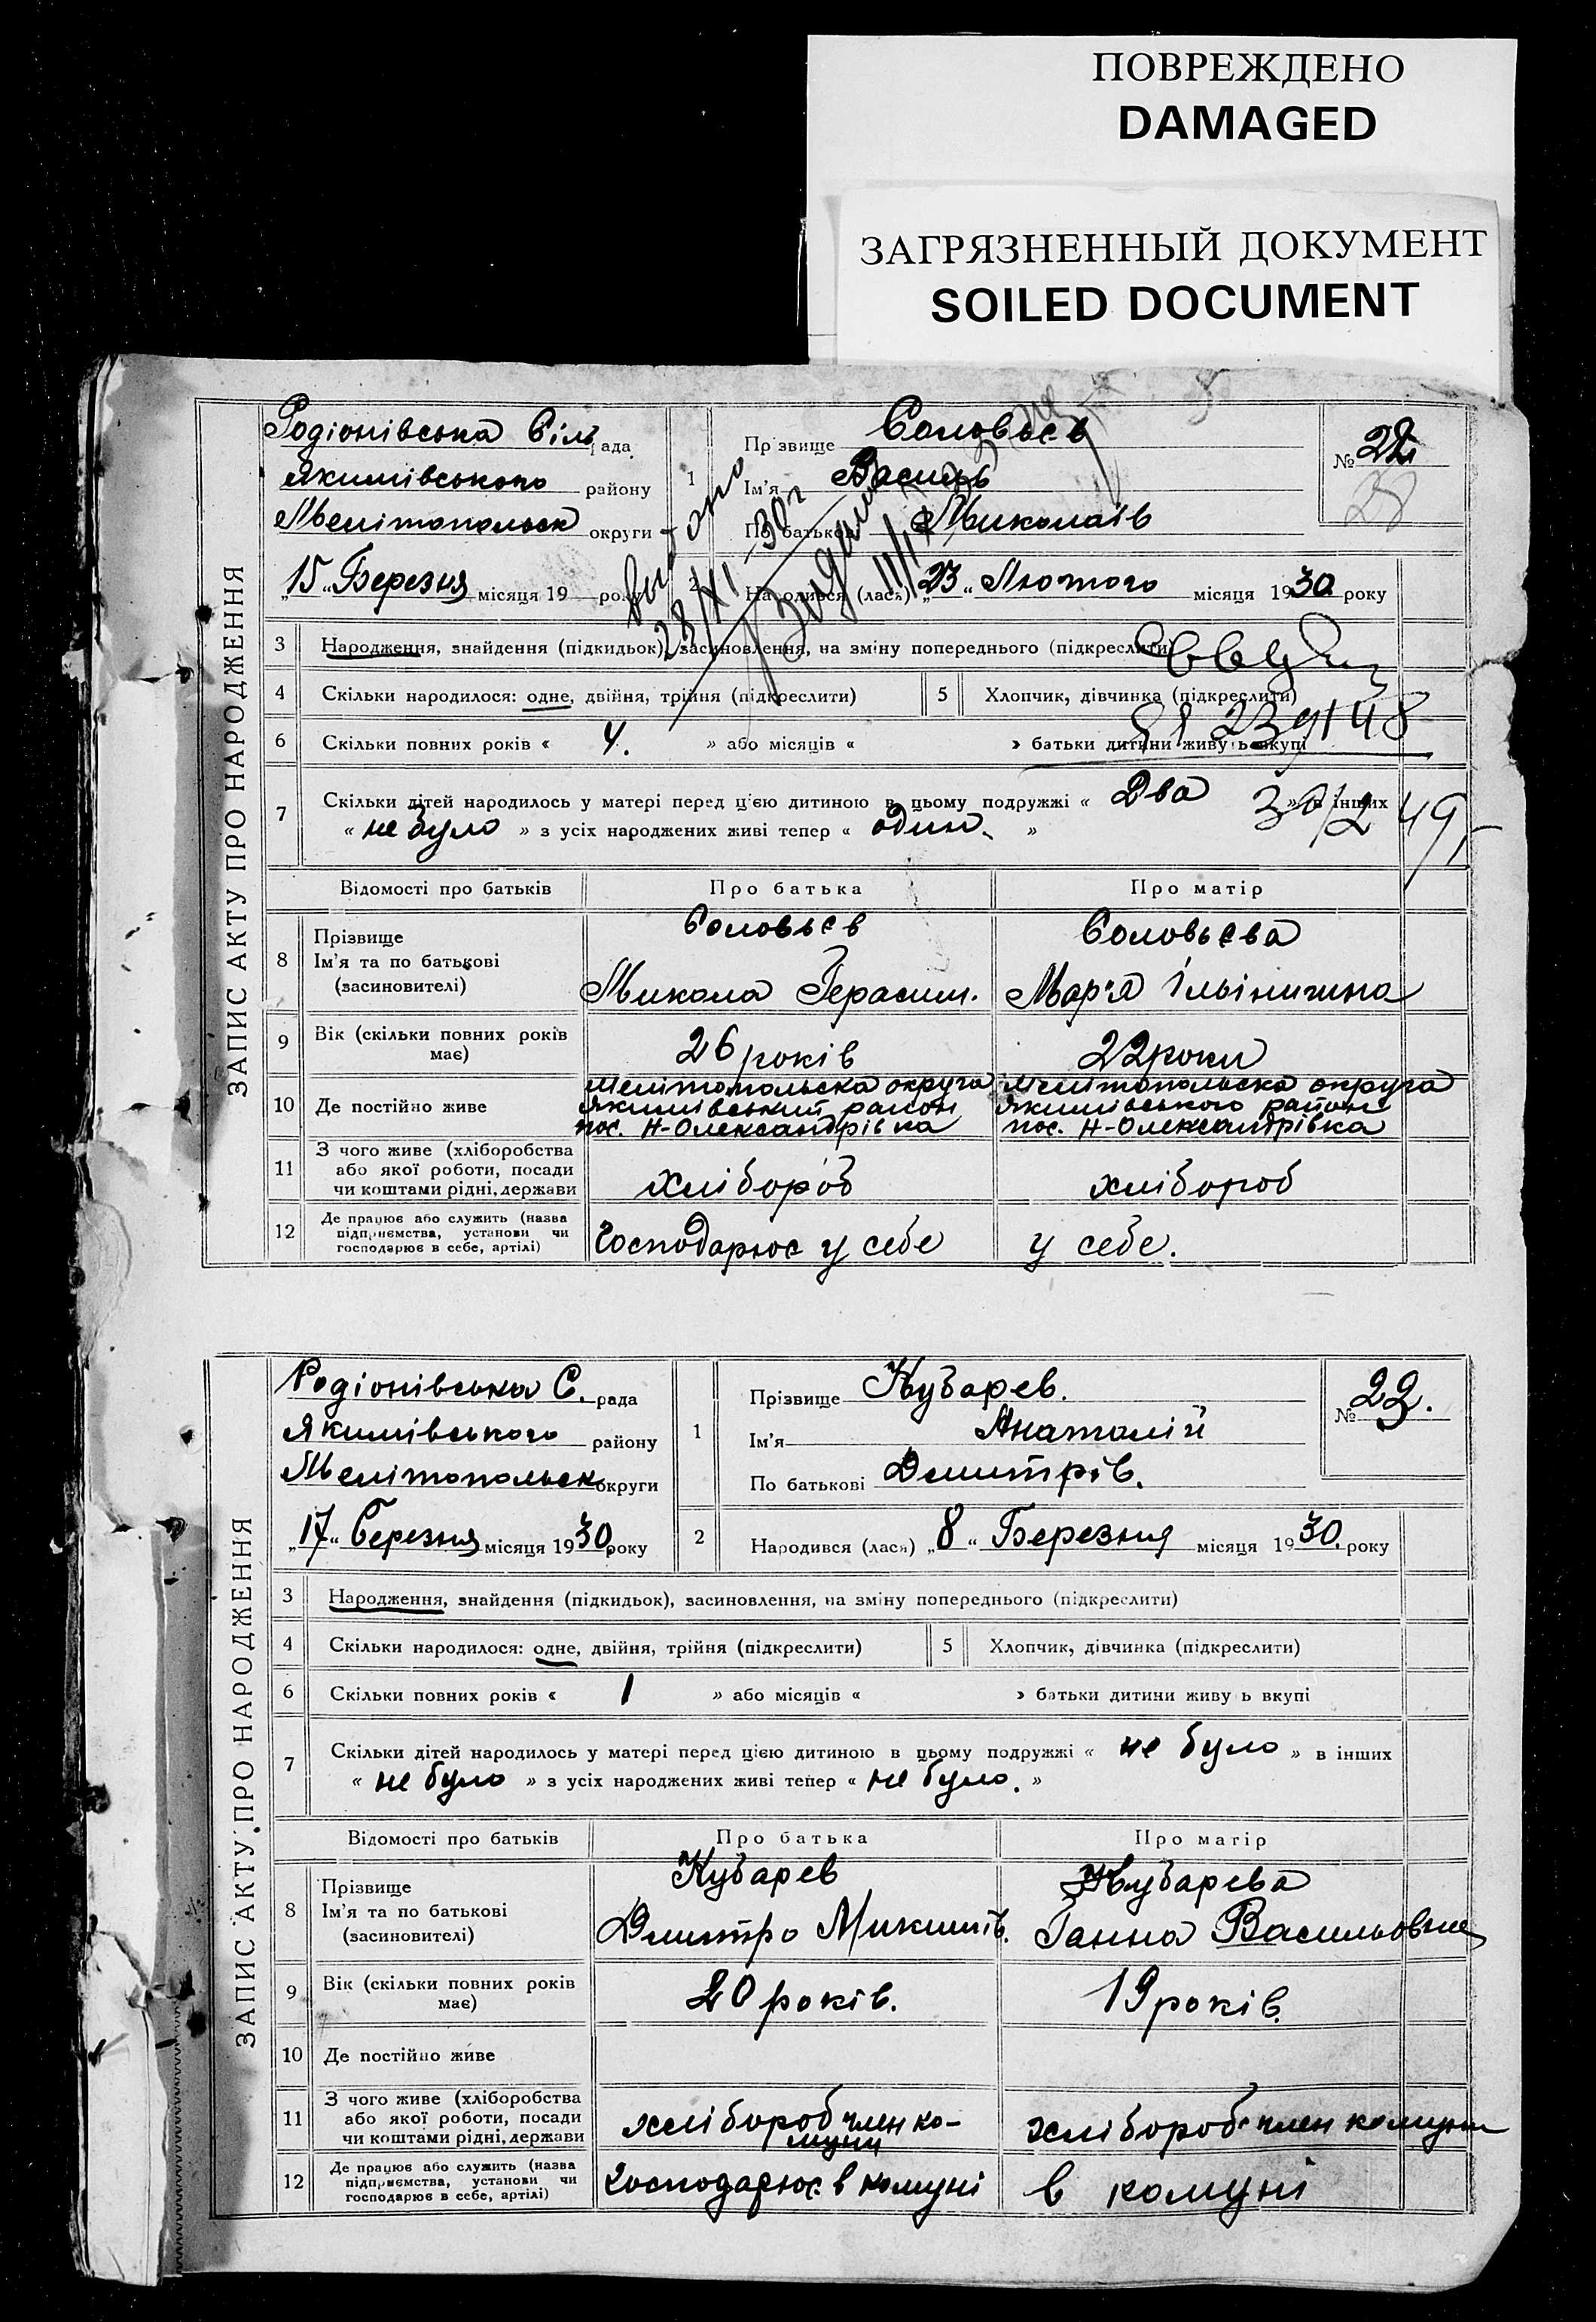 ПОВРЕЖДЕНО
DAMAGED
ЗАГРЯЗНЕННЫЙ ДОКУМЕНТ
SOILED DOCUMENT
ЗАПИС АКТУ ПРО НАРОДЖЕННЯ
Родіонівська Сіль рада
Якимівського району
Мелітопольск округи
„15“ Березня місяця 19 року
1
Прізвище Соловьєв
Ім'я Василь
По батькові Миколаїв
№ 22
28
2
Народився (лася) „23“ Лютого місяця 1930 року
28/XI 30 г
3 Народження, знайдення (підкидьок), засиновлення, на зміну попереднього (підкреслити)
4 Скільки народилося: одне, двійня, трійня (підкреслити) 5 Хлопчик, дівчинка (підкреслити)
6 Скільки повних років « 4. » або місяців « » батьки дитини живуть вкупі
7 Скільки дітей народилось у матері перед цією дитиною в цьому подружжі « Два » в інших
« не було » з усіх народжених живі тепер « один. »
Відомості про батьків Про батька Про матір
8 Прізвище
Ім'я та по батькові
(засиновителі)
Соловьєв
Микола Герасим.
Соловьєва
Мар'я Ільінична
9 Вік (скільки повних років
має)
26 років 22 роки
10 Де постійно живе
Мелітопольска округа
Якимівський район
пос. Н-Олександрівка
Мелітопольска округа
Якимівського район
пос. Н-Олександрівка
11 З чого живе (хліборобства
або якої роботи, посади
чи коштами рідні, держави
хлібороб хлібороб
12 Де працює або служить (назва
підприємства, установи чи
господарює в себе, артілі)
Господарює у себе у себе.
ЗАПИС АКТУ ПРО НАРОДЖЕННЯ
Родіонівська С. рада
Якимівського району
Мелітопольск округи
„17“ Березня місяця 1930 року
1
Прізвище Кубарев.
Ім'я Анатолій
По батькові Дмитрів.
№ 23.
2
Народився (лася) „8“ Березня місяця 1930. року
3 Народження, знайдення (підкидьок), засиновлення, на зміну попереднього (підкреслити)
4 Скільки народилося: одне, двійня, трійня (підкреслити) 5 Хлопчик, дівчинка (підкреслити)
6 Скільки повних років « 1 » або місяців « » батьки дитини живу ь вкупі
7 Скільки дітей народилось у матері перед цією дитиною в цьому подружжі « не було » в інших
« не було » з усіх народжених живі тепер « не було. »
Відомості про батьків Про батька Про матір
8 Прізвище
Ім'я та по батькові
(засиновителі)
Кубарев
Дмитро Микитів.
Кубарева
Ганна Васильовна
9 Вік (скільки повних років
має)
20 років. 19 років.
10 Де постійно живе
11 З чого живе (хліборобства
або якої роботи, посади
чи коштами рідні, держави
хлібороб член ко-
муни
хлібороб член комуни
12 Де працює або служить (назва
підприємства, установи чи
господарює в себе, артілі)
господарює в комуні в комуні